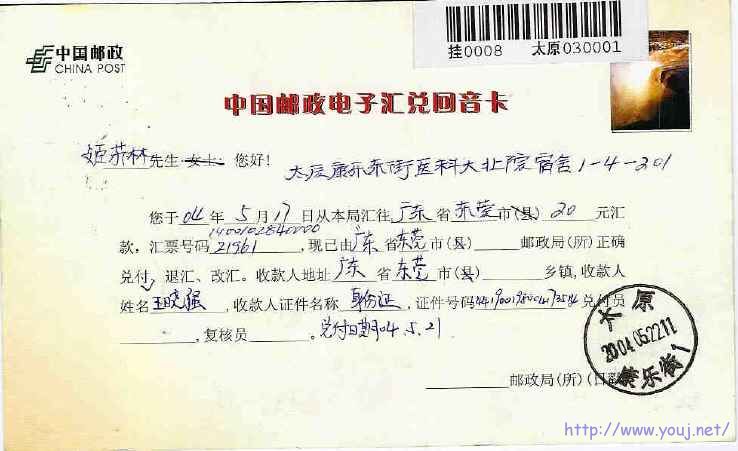 挂0008 太原030001
中国邮政
CHINA POST
中国邮政电子汇兑回音卡
姬恭林先生 女士 您好!
太原康乐东街医科大北院宿舍1-4-201
您于 04 年 5 月 17 日从本局汇往 广东 省 东莞 市(县) 20 元汇
1400102840000
款,汇票号码 21961 ,现已由 广东 省 东莞 市(县) 邮政局(所)正确
兑付、退汇、改汇。收款人地址 广东 省 东莞 市(县) 乡镇,收款人
姓名 王晓强 ,收款人证件名称 身份证 ,证件号码 兑付员
,复核员 。兑付日期04.5.21
太原
2004.05.22.11
康乐街1
邮政局(所)(日戳)
http://www.youj.net/